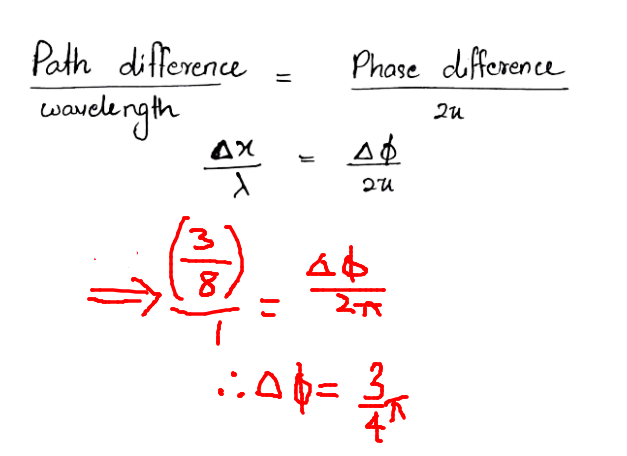 Path difference / wavelength = Phase difference / 2π
Δx / λ = Δϕ / 2π
⟹ (3/8) / 1 = Δϕ / 2π
∴ Δϕ = 3/4 π